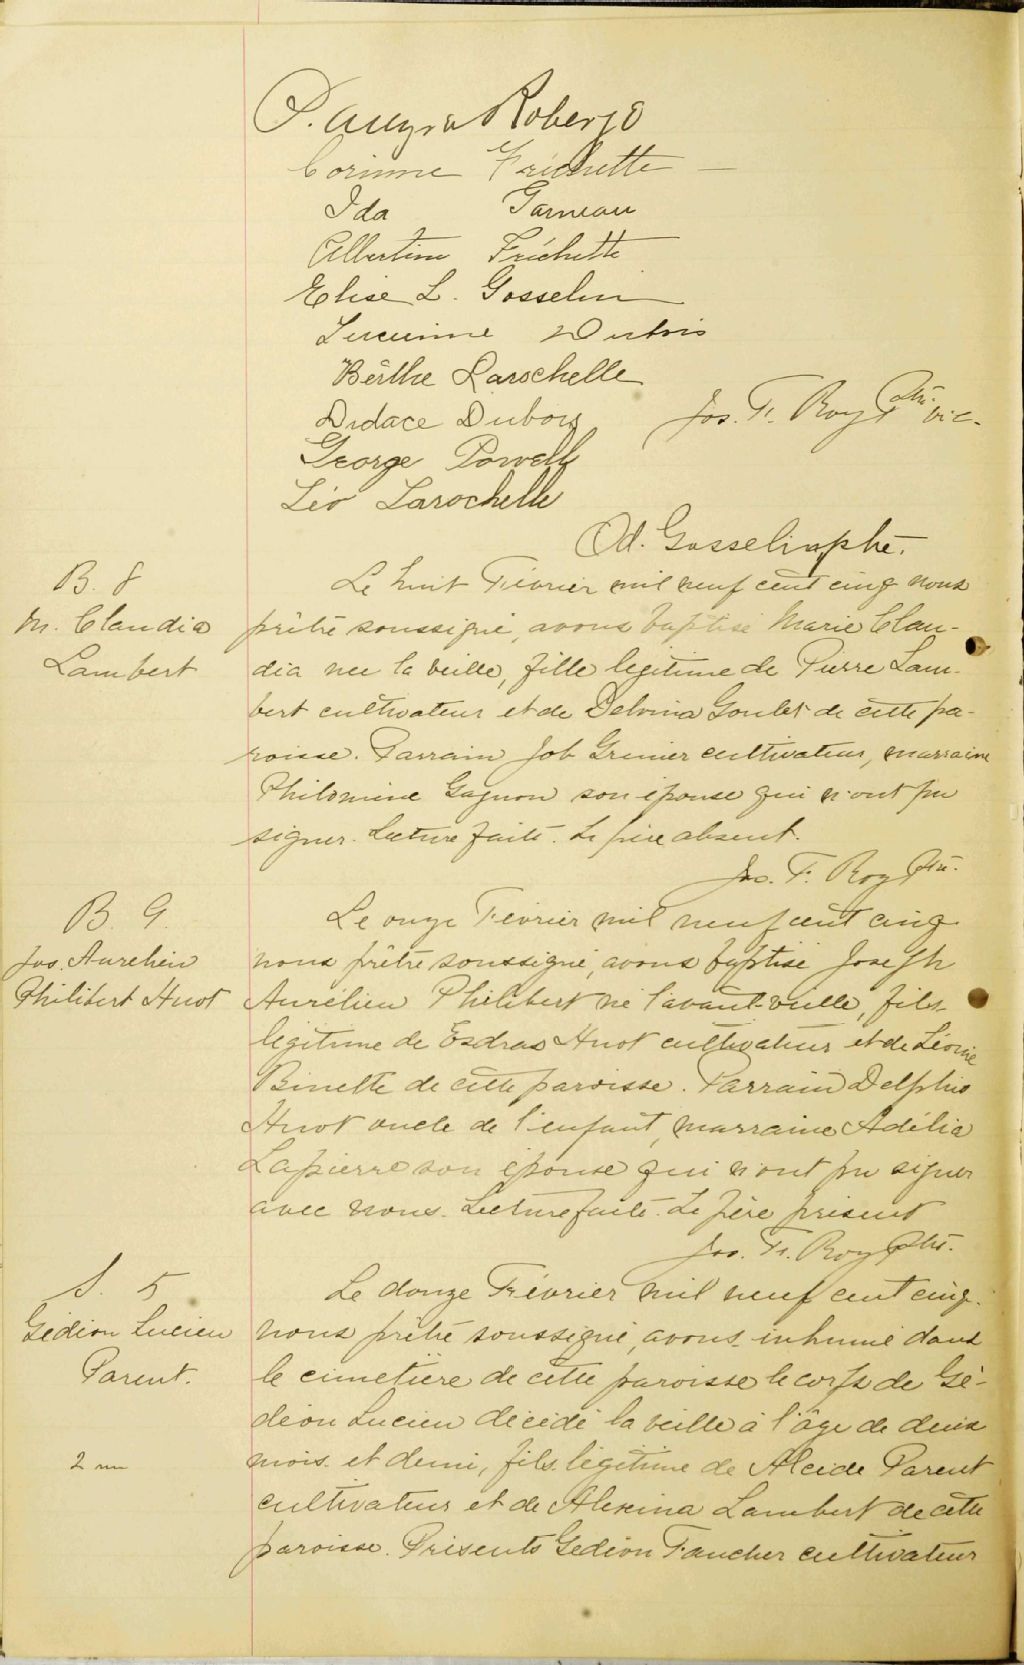 Roberge
Corinne Fréchette —
Ida Garneau
Albertine Fréchette
Elise L. Gosselin
Dubois
Bérthe Larochelle
Didace Dubois
Jos. F. Roy Ptre. vic.
George Powell
Léo Larochelle
Od. Gosselin
B. 8
M. Claudia
Lambert
Le huit Février mil neuf cent cinq nous
prêtre soussigné, avons baptisé Marie Clau-
dia née la veille, fille légitime de Pierre Lam-
bert cultivateur et de Delvina Goulet de cette pa-
roisse. Parrain Job Grenier cultivateur, marraine
Philomène Gagnon son épouse qui n'ont pu
signer. Lecture faite. Le père absent.
Jos. F. Roy Ptre.
B. 9.
Jos. Aurélien
Philibert Huot
Le onze Février mil neuf cent cinq
nous prêtre soussigné, avons baptisé Joseph
Aurélien Philibert né l'avant-veille, fils
légitime de Esdras Huot cultivateur et de Léonie
Binette de cette paroisse. Parrain Delphis
Huot oncle de l'enfant, marraine Adélia
Lapierre son épouse qui n'ont pu signer
avec nous. Lecture faite. Le père présent
Jos. F. Roy Ptre.
S. 5
Gédéon Lucien
Parent.
2 m
Le douze Février mil neuf cent cinq.
nous prêtre soussigné, avons inhumé dans
le cimetière de cette paroisse le corps de Gé-
déon Lucien décédé la veille à l'âge de deux
mois et demi, fils légitime de Alcide Parent
cultivateur et de Alexina Lambert de cette
paroisse. Présents Gédéon Faucher cultivateur